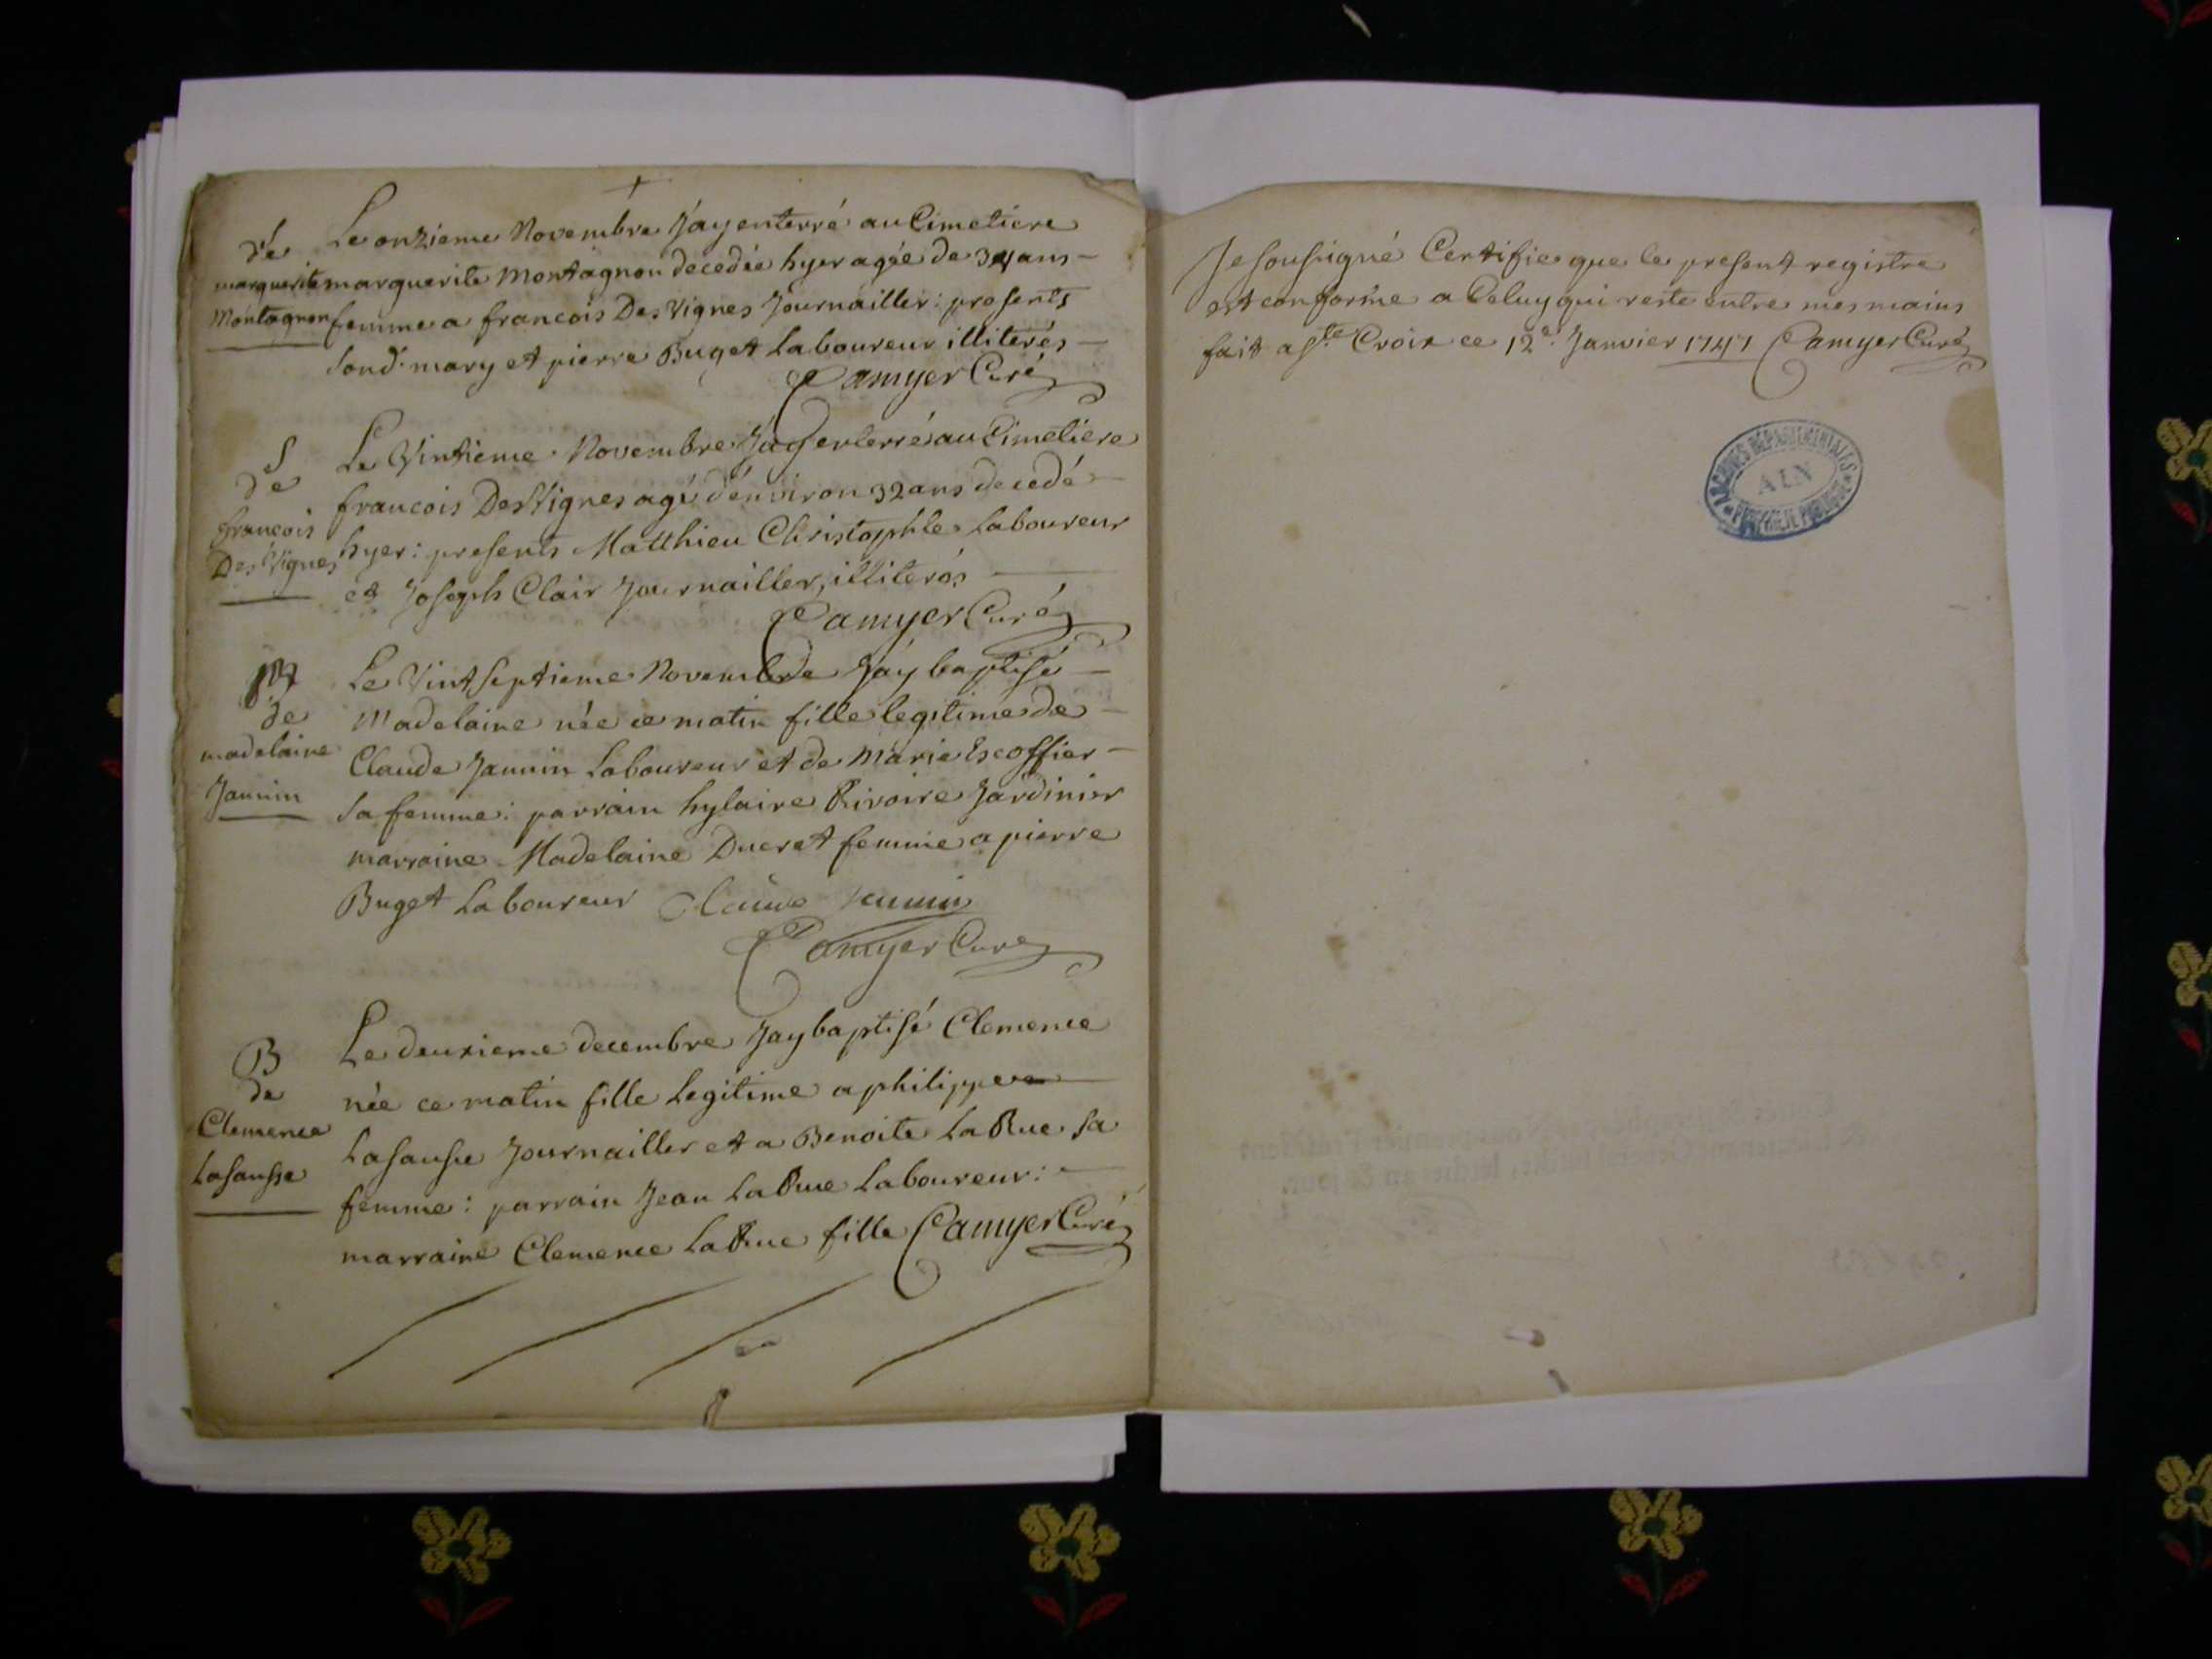 Le onzieme Novembre J'ay enterré au Cimetiere
de
marguerite marguerite Montagnon decedée hyer agée de 34 ans
Montagnon femme a francois Des Vignes Journailler: presents
sond. mary et pierre Buget Laboureur illiterés
Camyer Curé
S Le Vintieme Novembre J'ay enterré au Cimetiere
de francois Des Vignes agé d'environ 32 ans decedé
francois hyer: presents Matthieu Christophle Laboureur
Des Vignes et Joseph Clair Journailler, illiterés
Camyer Curé
B Le Vint septieme Novembre J'ay baptisé
de Madelaine née ce matin fille legitime de
madelaine Claude Jannin Laboureur et de Marie Escoffier
Jannin sa femme: parrain hylaire Rivoire Jardinier
marraine Madelaine Ducret femme a pierre
Buget Laboureur Claude Jannin
Camyer Curé
B Le deuxieme decembre J'ay baptisé Clemence
de née ce matin fille legitime a philippe
Clemence Lasausse Journailler et a Benoite La Rue sa
Lasausse femme: parrain Jean La Rue Laboureur:
marraine Clemence La Rue fille Camyer Curé
Je soussigné Certifie que le present registre
est conforme a Celuy qui reste entre mes mains
fait a Ste Croix ce 12e. Janvier 1747 Camyer Curé
ARCHIVES DÉPARTEMENTALES
AIN